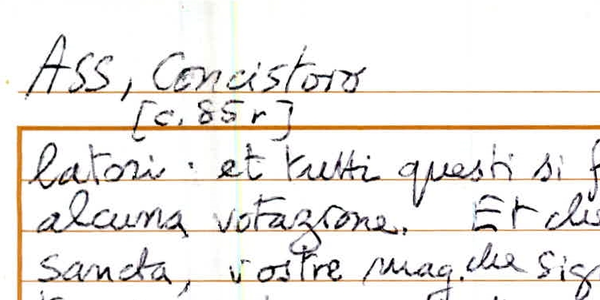 ASS, Concistoro
[c. 85 r]
latori: et tutti questi si f
alcuna votazione. Et che
sancta, vostre mag.che sig